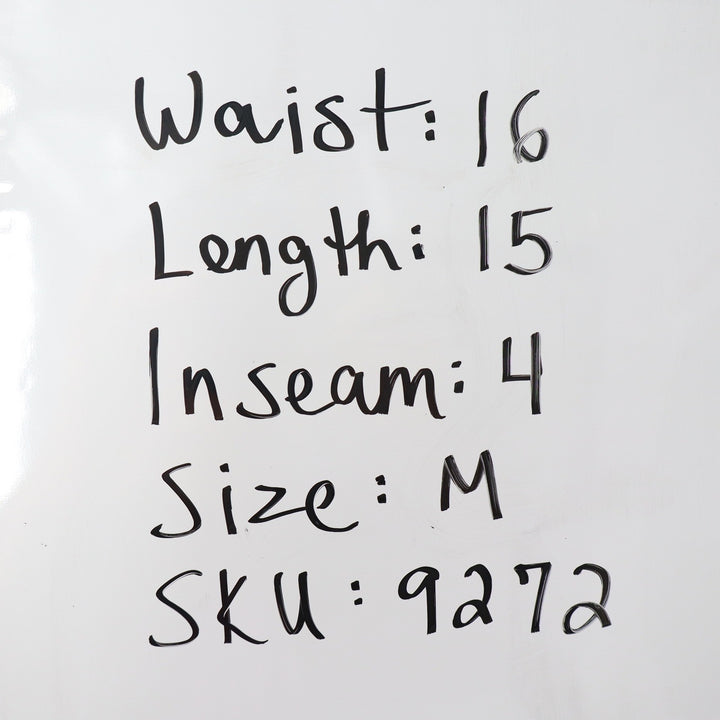 Waist: 16
Length: 15
Inseam: 4
Size: M
SKU: 9272